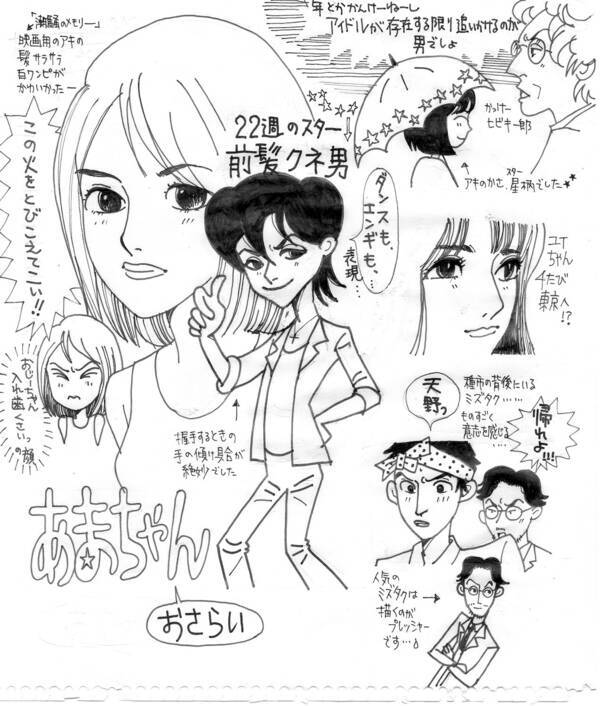 「潮騒のメモリー」
映画用のアキの
髪サラサラ
白ワンピが
かわいかったー
年とかかんけーねーし
アイドルが存在する限り追いかけるのが
男でしょ
かっけー
ヒビキ一郎
スター
アキのかさ、星柄でした
22週のスター
前髪クネ男
この火をとびこえてこい!!
ダンスも、
エンギも、…
表現…
ユイ
ちゃん
4たび
東京へ
!?
おじーちゃん
入れ歯くさいっ
の顔
握手するときの
手の傾け具合が
絶妙でした
天野っ
種市の背後にいる
ミズタク……
ものすごく
意志を感じる…
帰れよ!!!
あまちゃん
おさらい
人気の
ミズタクは
描くのが
プレッシャー
です…♪